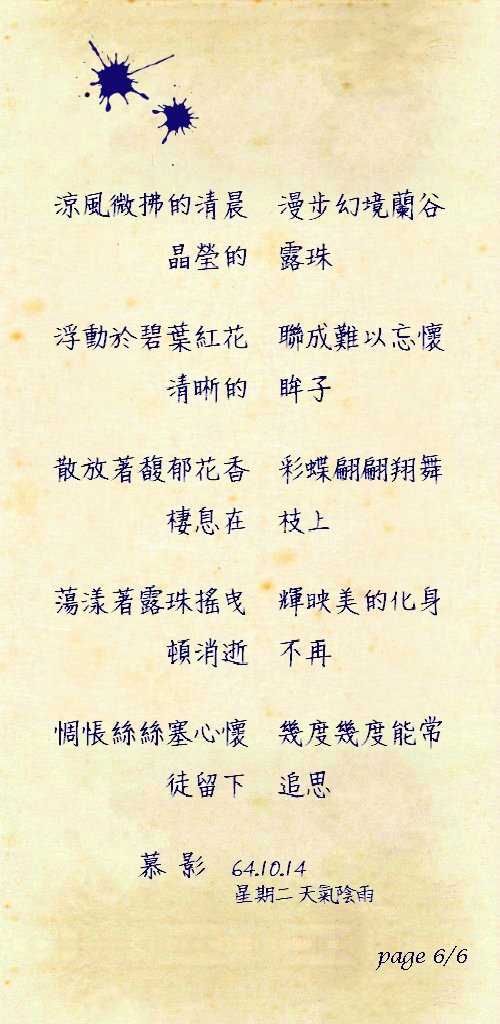 涼風微拂的清晨　漫步幻境蘭谷
晶瑩的　露珠
浮動於碧葉紅花　聯成難以忘懷
清晰的　眸子
散放著馥郁花香　彩蝶翩翩翔舞
棲息在　枝上
蕩漾著露珠搖曳　輝映美的化身
頓消逝　不再
惆悵絲絲塞心懷　幾度幾度能常
徒留下　追思
慕 影　64.10.14
星期二 天氣陰雨
page 6/6